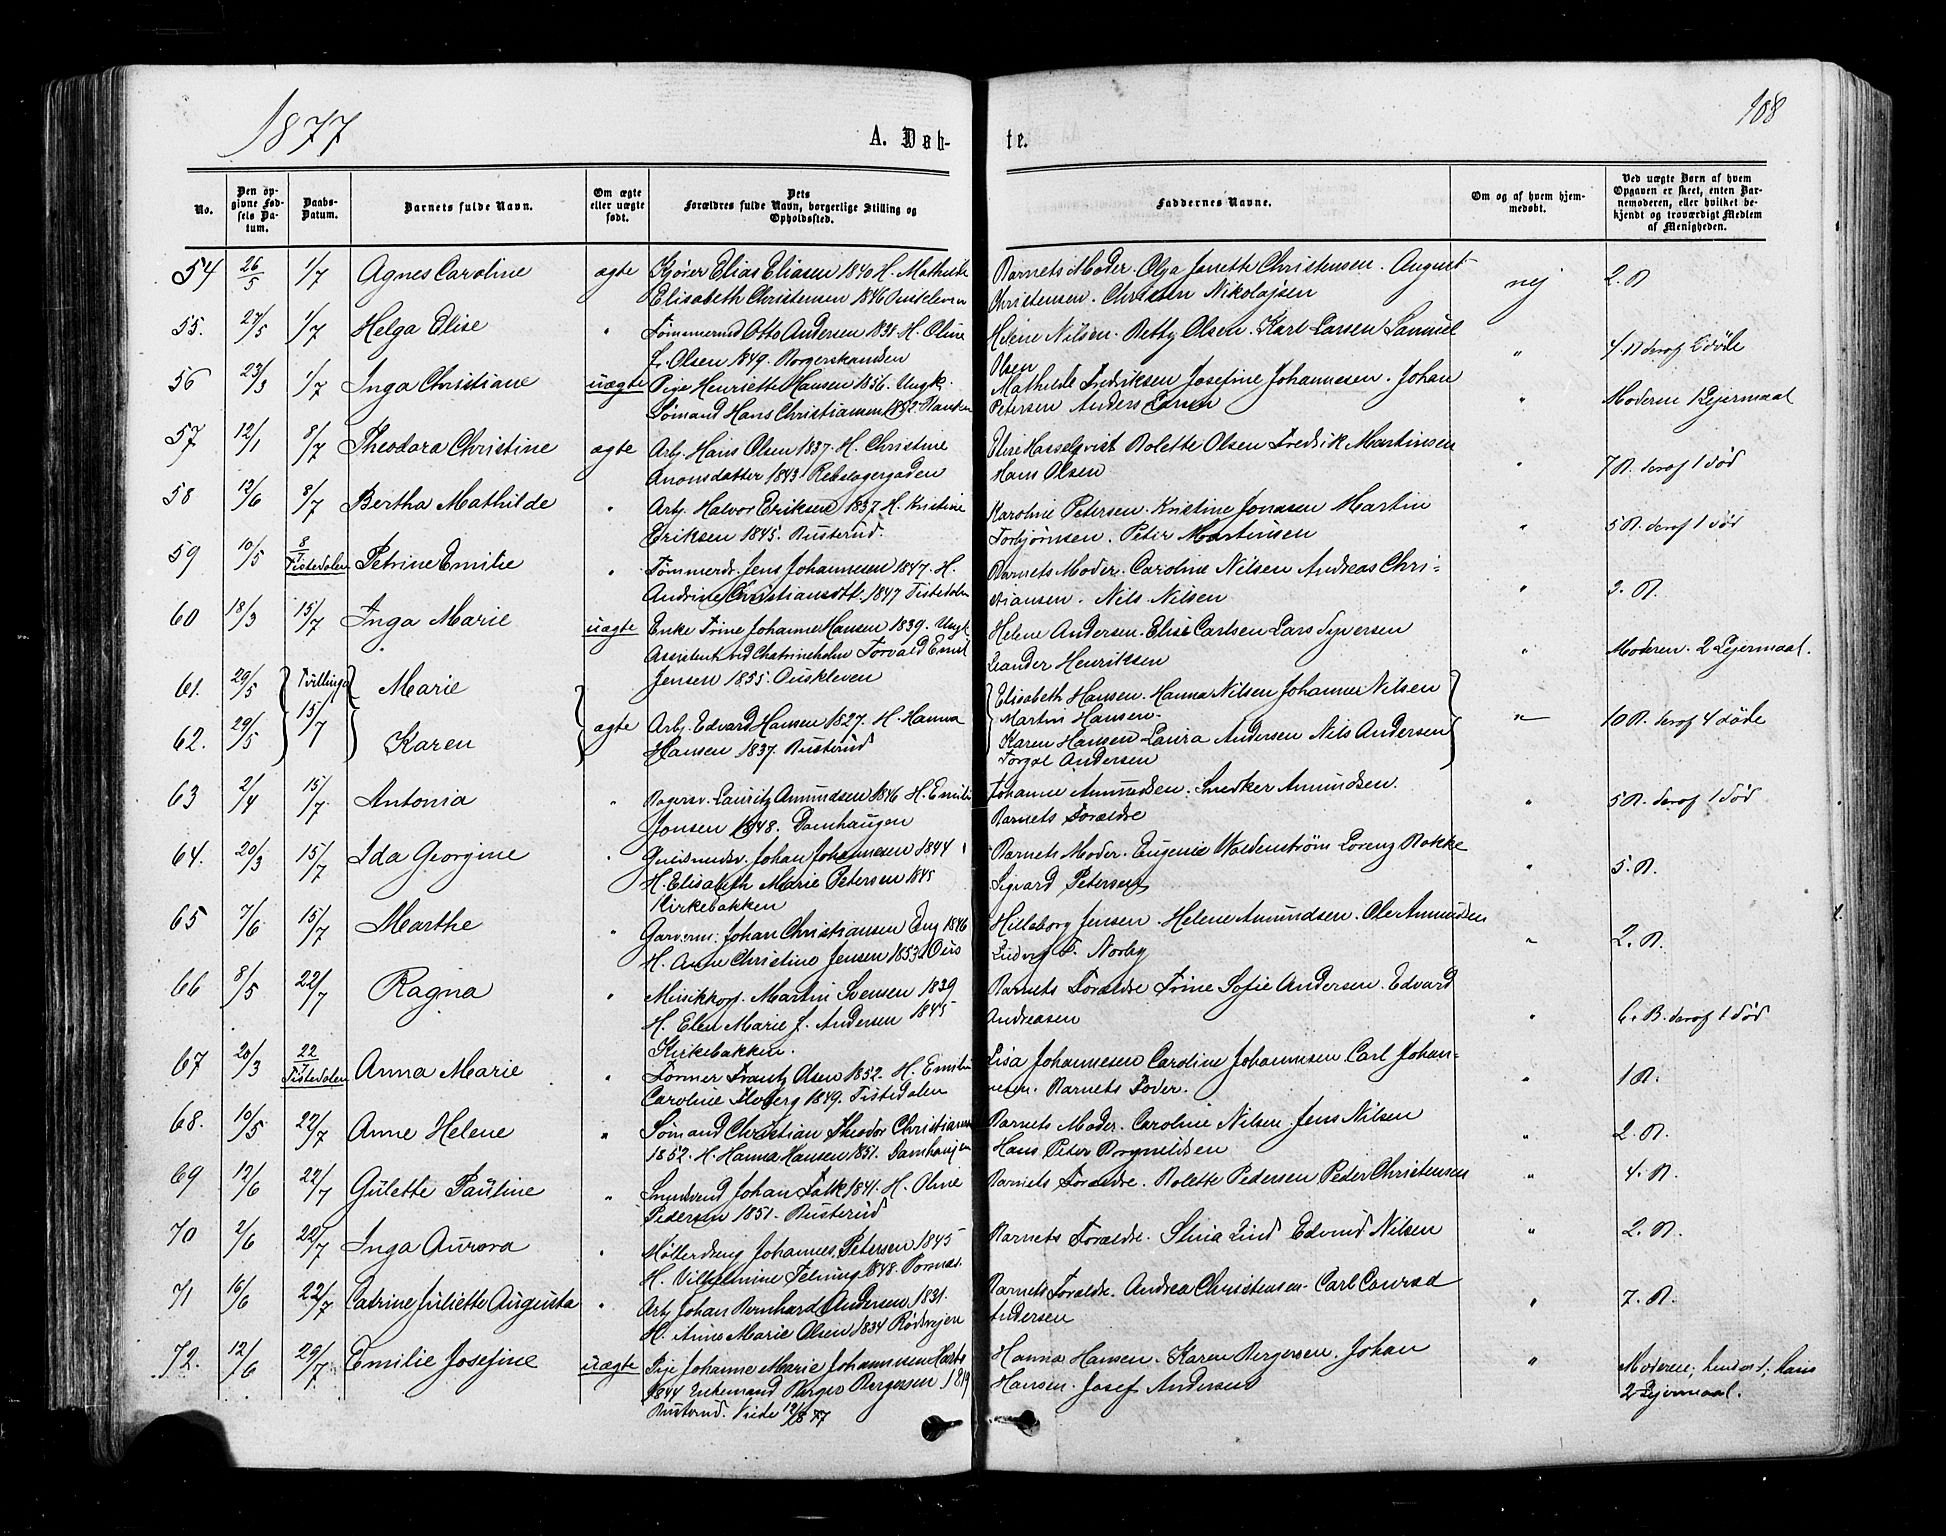 1877
A. Døb-
te.
108
No.
Den op-
givne Fød-
sels Da-
tum.
Daabs-
Datum.
Barnets fulde Navn.
Om ægte
eller uægte
født.
Dets
Forældres fulde Navn, borgerlige Stilling og
Opholdssted.
Faddernes Navne.
Om og af hvem hjem-
medøbt.
Ved uægte Børn af hvem
Opgaven er skeet, enten Bar-
nemoderen, eller hvilket be-
kjendt og troværdigt Medlem
af Menigheden.
54 26/5 1/7 Agnes Caroline ægte Kjører Elias Eliasen 1840 H. Mathilde Barnets Moder. Olga Janette Christensen. August nej 2. B
Elisabeth Christensen 1846 Christensen. Christen Nikolajsen
55. 27/5 1/7 Helga Elise " Tømmermd Otto Andersen 1831 H. Oline Helene Nilsen. Betty Olsen. Karl Larsen Samuel " 4 B deraf 2 døde
L. Olsen 1849. Borgerskansen Olsen
56 23/3 1/7 Inga Christiane uægte Pige Henriette Hansen 1856. Ungk. Mathilde Fredriksen Josefine Johannesen. Johan " Moderen 1 Lejermaal
Sømand Hans Christiansen Banken Petersen Anders Larsen
57 12/1 8/7 Theodora Christine ægte Arb. Hans Olsen 1837. H. Christine Elise Hasselqvist Bolette Olsen Fredrik Martinsen " 7 B. deraf 1 død
Aronsdatter 1843 Rebslagergaden Hans Olsen
58 12/6 8/7 Bertha Mathilde " Arb. Halvor Eriksen 1837 H. Kristine Karoline Petersen. Kristine Jonasen Martin " 5 B. deraf 1 død
Eriksen 1845. Busterud. Torbjørnsen. Peter Martinsen
59 10/5 8/7 Tistedalen Petrine Emilie " Tømmerdr. Jens Johannesen 1847. H. Barnets Moder. Caroline Nilsen Andreas Chri- "
Andrine Christiansdtt. 1847 Tistedalen stiansen. Nils Nilsen
60 18/3 15/7 Inga Marie uægte Enke Trine Johanne Hansen 1839. Ungk. Helene Andersen. Elise Carlsen Lars Syversen " Moderen. 2 Lejermaal.
Assistent ved Chatrineholm Torvald Emil Leander Henriksen
Jensen 1855.
61. 29/5 Tvillinger Marie Elisabeth Hansen. Hanna Nilsen Johannes Nilsen
Martin Hansen.
62. 29/5 15/7 Karen ægte Arb. Edvard Hansen 1827. H. Hanna Karen Hansen Laura Andersen Nils Andersen " 10 B. deraf 4 døde
Hansen 1837. Busterud Torgal Andersen
63 2/4 15/7 Antonia " Bagersv. Lauritz Amundsen 1846 H. Emilie Johanne Amundsen. Amundsen. " 5 B. deraf 1 død
Jonsen 1848. Damhaugen Barnets Forældre
64. 20/3 15/7 Ida Georgine " Johan Johannesen 1844 Barnets Moder. Eugenie Waldenstrøm Lorenz Bakke " 5. B.
H. Elisabeth Marie Petersen 1845 Sigvard Petersen
Kirkebakken
65 7/6 15/7 Marthe " Garverm: Johan Christiansen Eng 1846 Hilleborg Jensen. Helene Amundsen. Ole Amundsen " 2. B.
H. Anne Christine Jensen 1853 Ludvig F. Norby
66 8/5 22/7 Ragna " Musikkorp. Martin Svensen 1839 Barnets Forældre Trine Sofie Andersen. Edvard " 6. B. deraf 1 død
H. Elen Marie J. Andersen 1845 Andreasen
Kirkebakken.
67 20/3 22/7 Tistedalen Anna Marie " Former Frantz Olsen 1852. H. Emilie Lisa Johannesen Caroline Johannesen Carl Johan- " 1 B.
Caroline Floberg 1849. Tistedalen nesen. Barnets Fader.
68. 10/5 22/7 Anne Helene " Sømand Christian Theodor Christiansen Barnets Moder. Caroline Nilsen. Jens Nilsen " 2. B.
1852. H. Hanna Hansen 1851. Damhaugen Hans Peter Brynildsen
69 12/6 22/7 Gulette Pauline " Smedsvend Johan Falk 1841. H. Oline Barnets Forældre. Bolette Pedersen Peder Christensen " 4. B.
Pedersen 1851. Busterud
70 2/6 22/7 Inga Aurora " Møllerdreng Johannes Petersen 1845 Barnets Forældre. Stina Lind Edvind Nilsen " 2. B.
H. Vilhelmine Felning 1848.
71 16/6 22/7 Catrine Juliette Augusta " Arb. Johan Bernhard Andersen 1831. Barnets Forældre. Andrea Christensen. Carl Conrad " 7. B.
H. Anne Marie Olsen 1834 Rødsvejen Andersen
72. 12/6 29/7 Emilie Josefine uægte Pige Johanne Marie Johannesen Hanna Hansen. Karen Bergersen. Johan " Moderen; hendes 1, hans
1844 Enkemand Berger Bergersen 1819 Hansen. Josef Andersen 2 Lejermaal.
Busterud. Viede 12/8 77